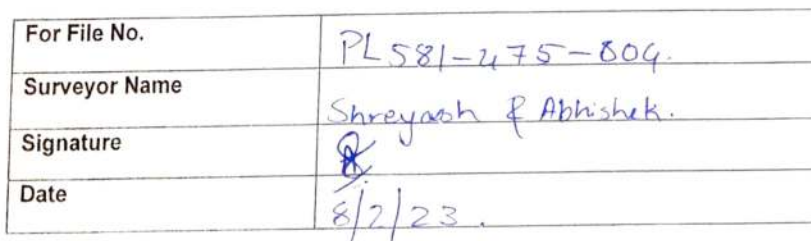 For File No. PL581-475-804.
Surveyor Name Shreyash & Abhishek.
Signature
Date 8/2/23.